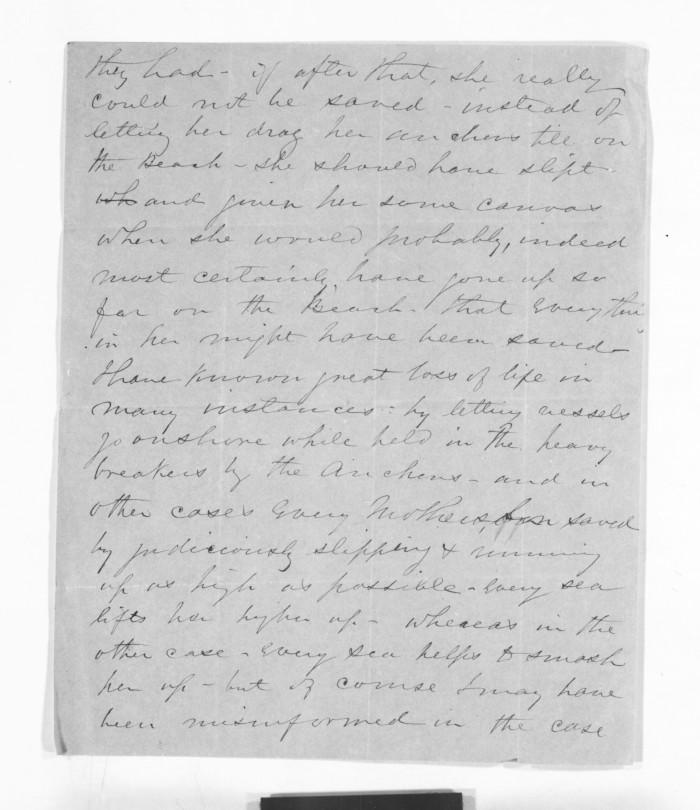 they had - if after that, she really
could not be saved - instead of
letting her drag her anchors till on
the Beach - she should have slipt -
wh and given her some canvas
when she would probably, indeed
most certainly, have gone up so
far on the Beach - that every thin
in her might have been saved -
I have known great loss of life in
many instances: by letting vessels
go onshore while held in the heavy
breakers by the Anchors - and in
other cases every Mothers son saved
by judiciously slipping & running
up as high as possible - every sea
lifts her higher up - whereas in the
other case - every sea helps to smash
her up - but of course I may have
been misinformed in the case